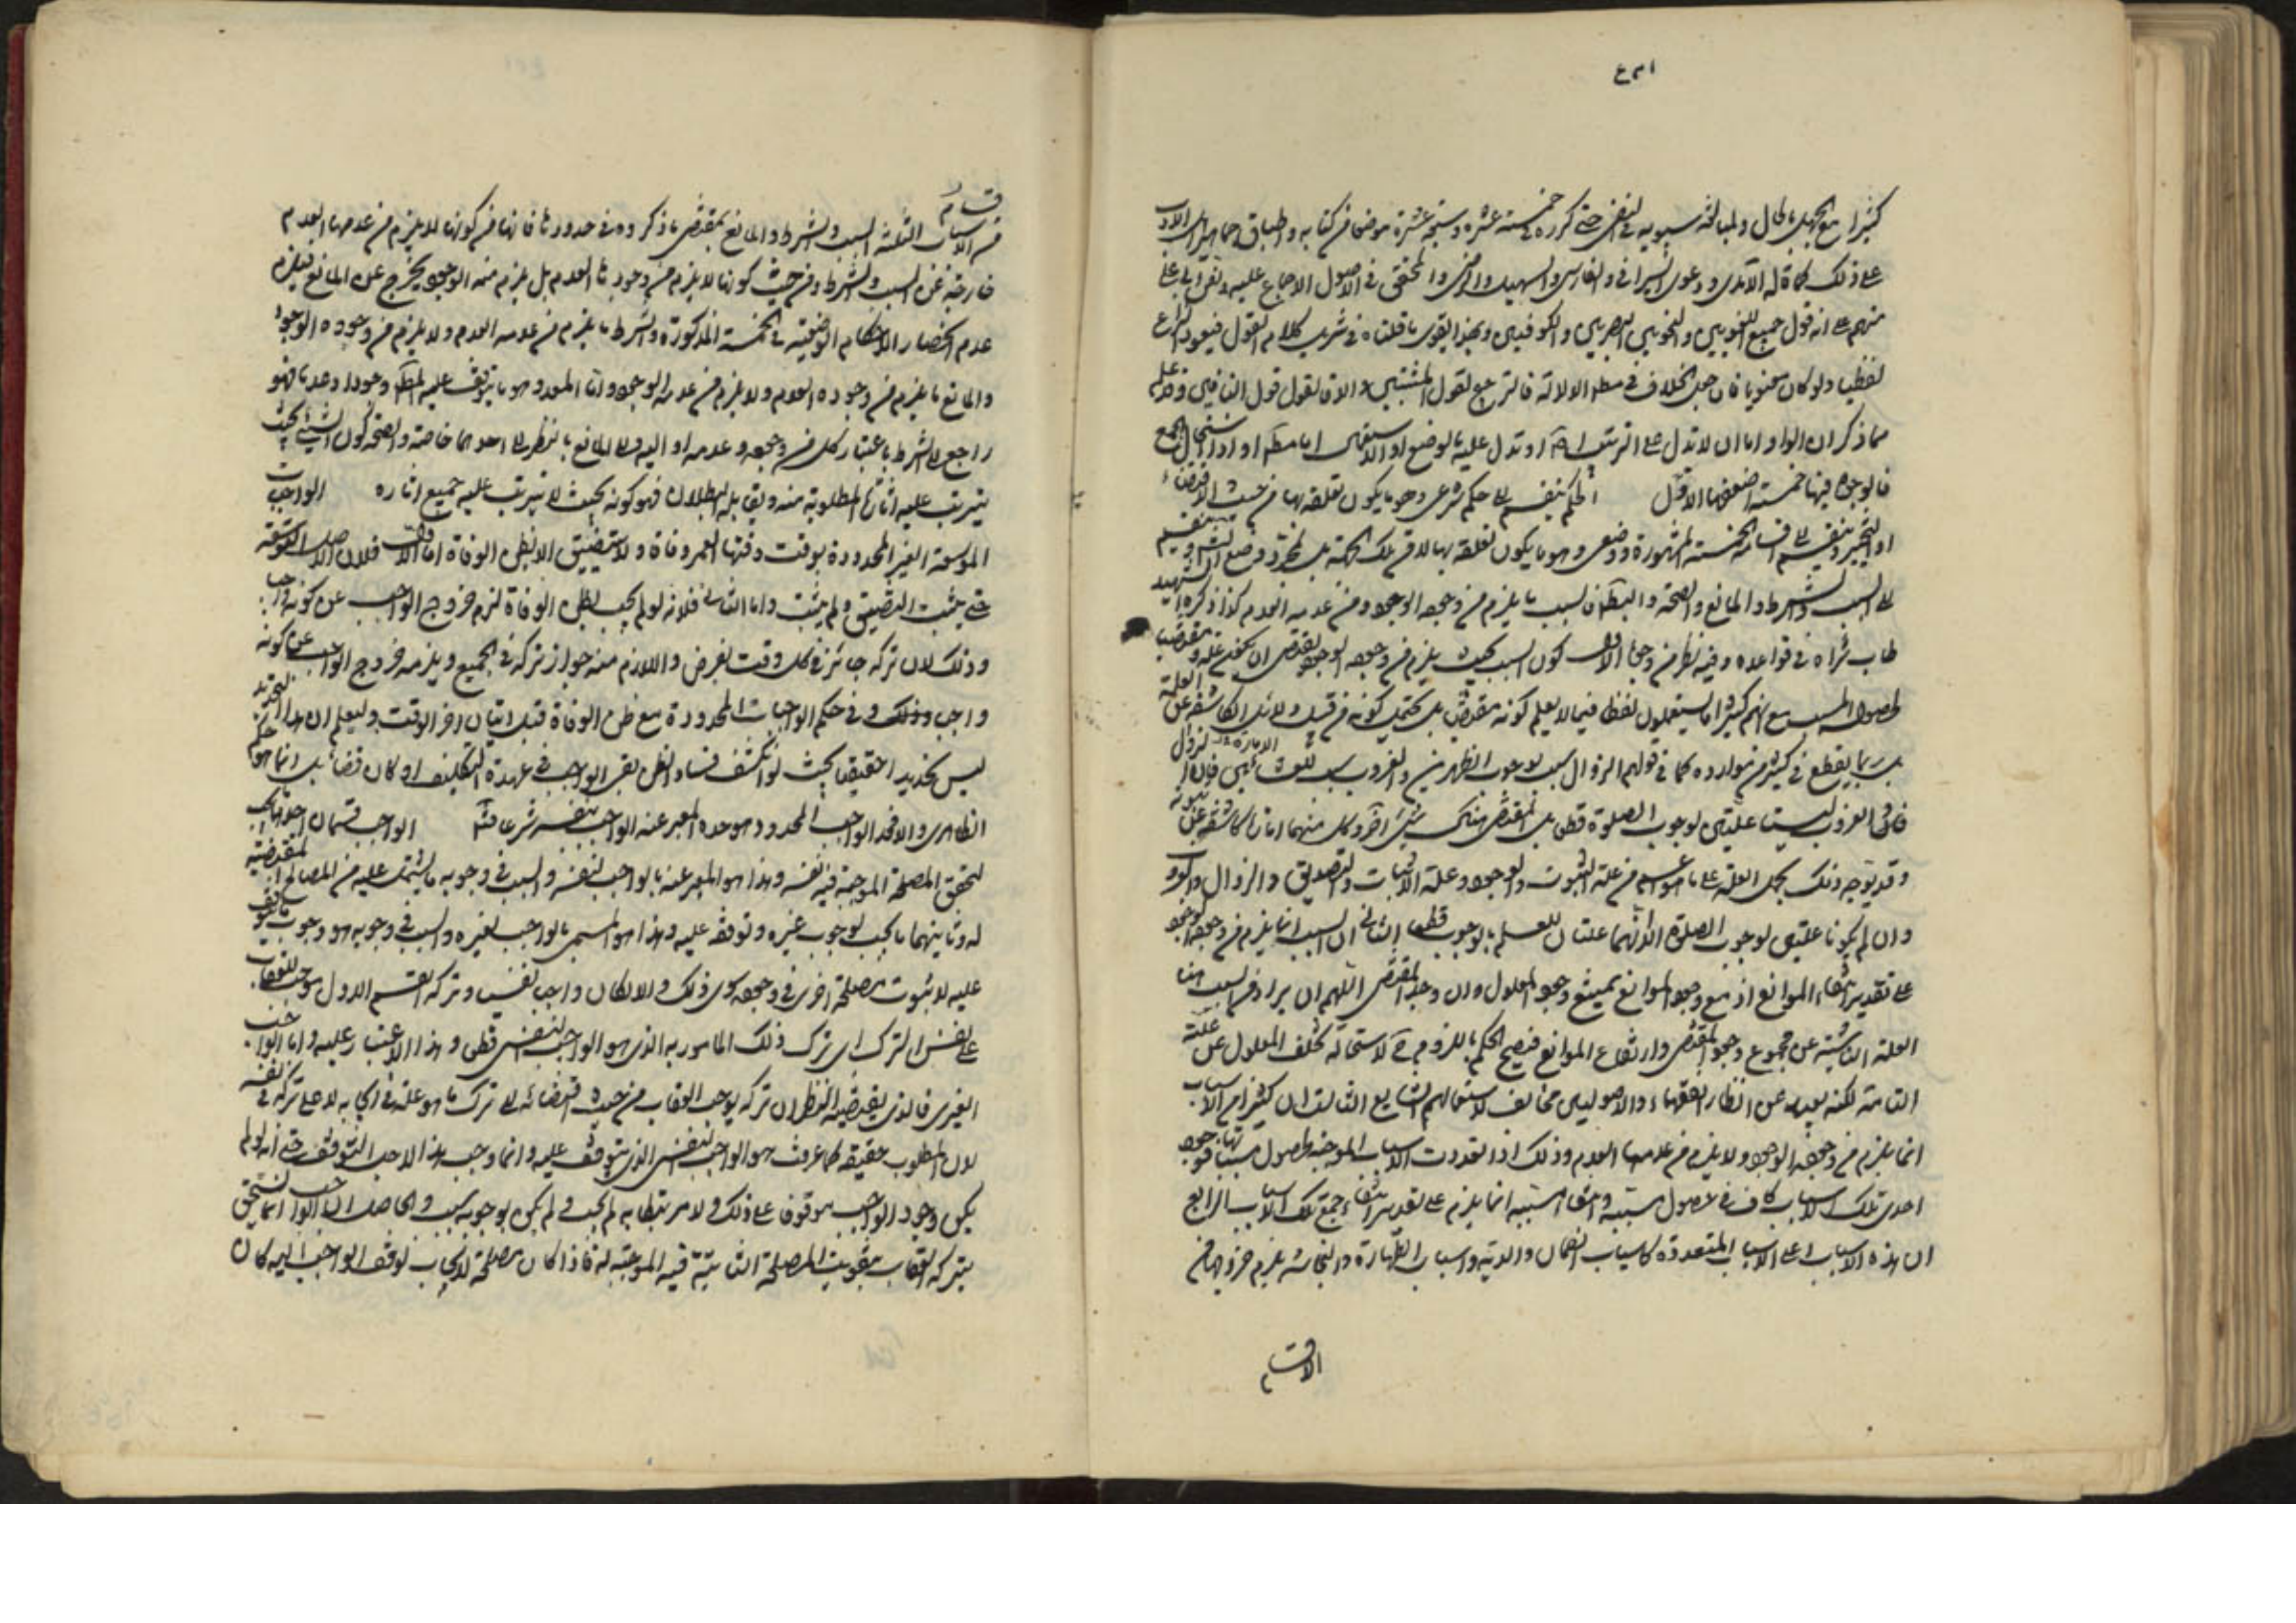 كثيرا مع الجهل بالحال ولمبالغة سيبويه في النص حتى كرره في خمسة عشر وسبعة عشرة موضعا من كتابه واطباق جماهير الادب
على ذلك كما قاله الآمدي ودعوى السيرافي والفارسي والسهيلي والرضي والمحقق في الاصول الاجماع عليه ونص
منهم على انه قول جميع اللغويين والنحويين البصريين والكوفيين وبهذا يقوى ما قلناه في شريف كلام القول فيعود النزاع
لفظيا ولو كان معنويا فان جعل الخلاف في مطلق الدلالة فالترجيح لقول المثبتين والا فالقول قول النافين وقد علم
مما ذكر ان الواو اما ان لا تدل على الترتيب او تدل عليه بالوضع او الاستعمال اما مطلقا او اذا استحال الجمع
فالوجوه فيها خمسة اضعفها الاول الحكم ينقسم الى حكم شرعي وهو ما يكون تعلقه بها من حيث الاقتضاء
او التخيير وينقسم الى اقسامه الخمسة المشهورة ووضعي وهو ما يكون تعلقه بها لا من تلك الجهة بل لمجرد وضع الشارع وينقسم
الى السبب والشرط والمانع والصحة والبطلان فالسبب ما يلزم من وجوده الوجود ومن عدمه العدم كذا ذكره الشهيد
طاب ثراه في قواعده وفيه نظر من وجوه الاول كون السبب بحيث يلزم من وجوده الوجود يقتضي ان يكون علة ومقتضيا
لحصول المسبب مع انهم كثيرا ما يستعملون لفظه فيما لا يعلم كونه مقتضيا بل يحتمل كونه من قبيل الدلائل الكاشفة عن العلة
بل ربما يقطع في كثير من موارده كما في قولهم الزوال سبب لوجوب الظهرين والغروب سبب للعشائين فان الزوال
والغروب ليستا علتين لوجوب الصلوة قطعا بل المقتضي هناك شيء آخر وكل منهما امارة كاشفة عن ثبوته
وقد يوجه ذلك بحمل العلة على ما هو اعم من علة الثبوت والوجود وعلة الاثبات والتصديق والزوال والغروب
وان لم يكونا علتين لوجوب الصلوة الا انهما علتان للعلم بالوجوب قطعا الثاني ان السبب انما يلزم من وجوده الوجود
على تقدير انتفاء الموانع اذ مع وجود الموانع يمتنع وجود المعلول وان وجد المقتضي اللهم ان يراد من السبب هنا
العلة الناشئة عن مجموع وجود المقتضي وارتفاع الموانع فيصح الحكم باللزوم لاستحالة تخلف المعلول عن علته
التامة لكنه بعيد عن انظار الفقهاء والاصوليين مخالف لاستعمالهم الشايع الثالث ان كثيرا من الاسباب
انما يلزم من وجودها الوجود ولا يلزم من عدمها العدم وذلك اذا تعددت الاسباب الموجبة لحصول مسبباتها فوجود
احدى تلك الاسباب كاف في حصول مسببه وانتفاء مسببه انما يلزم على تقدير انتفاء جميع تلك الاسباب الرابع
ان هذه الاسباب اعني الاسباب المتعددة كاسباب الضمان والدية واسباب الطهارة والنجاسة يلزم خروجها من
الاقسام
اقسام
من الاسباب الثلثة السبب والشرط والمانع بمقتضى ما ذكروه في حدودها فانها من كونها لا يلزم من عدمها العدم
خارجة عن السبب والشرط ومن حيث كونها لا يلزم من وجودها العدم بل يلزم منه الوجود يخرج عن المانع فيلزم
عدم انحصار الاحكام الوضعية في الخمسة المذكورة والشرط ما يلزم من عدمه العدم ولا يلزم من وجوده الوجود
والمانع ما يلزم من وجوده العدم ولا يلزم من عدمه الوجود واما المعد وهو ما يتوقف عليه وجودا وعدما فهو
راجع الى الشرط باعتبار كل من وجوده وعدمه او اليه والى المانع بالنظر الى احدهما خاصة والصحة كون الشيء بحيث
يترتب عليه آثاره المطلوبة منه ويقابله البطلان فهو كونه بحيث لا يترتب عليه جميع آثاره الواجبات
الموسعة الغير المحدودة بوقت وقتها العمر وفاة ولا تتضيق الا بظن الوفاة اما الاول فلان الاصل التوسعة
حتى يثبت التضيق ولم يثبت واما الثاني فلانه لو لم يجب بظن الوفاة لزم خروج الواجب عن كونه واجبا
وذلك لان تركه جائز في كل وقت بفرض واللازم منه جواز تركه في الجميع ويلزمه خروج الواجب عن كونه
واجب وذلك وفي حكم الواجبات المحدودة مع ظن الوفاة قبل اتيان آخر الوقت وليعلم ان هذا التحديد
ليس تحديدا حقيقيا بحيث لو انكشف فساد الظن بقي الواجب في عهدة التكليف او كان قضاء بل انما هو حكم
الظاهري والا فحد الواجب المحدود هو حده المعبر عنه الواجب بنفسه شرعا الواجب قسمان احدهما ما يجب
لتحقق المصلحة الموجبة فيه نفسه وهذا هو المعبر عنه بالواجب لنفسه والسبب في وجوبه ما يشتمل عليه من المصالح المقتضية
له وثانيهما ما يجب لوجوب غيره وتوقفه عليه وهذا هو المسمى بالواجب لغيره والسبب في وجوبه هو وجوب ما يتوقف
عليه لا ثبوت مصلحة اخرى في وجوده سوى ذلك والا لكان واجب نفسي وترك القسم الاول موجب للعقاب
على نفس الترك اي ترك ذلك المأمور به الذي هو الواجب النفسي قطعا وهذا الاعتبار عليه واما الواجب
الغيري فالذي يقتضيه النظر ان تركه يوجب العقاب من حيث اقتضائه الى ترك ما هو علة في ايجابه لا على تركه في نفسه
لان المطلوب حقيقة كما عرفت هو الواجب النفسي الذي يتوقف عليه وانما وجب هذا لاجل التوقف حتى انه لو لم
يكن وجود الواجب موقوفا على ذلك ولا مرتبطا به لم يجب ولم يكن لوجوبه سبب والحاصل ان الواجب انما يستحق
بتركه العقاب بتفويت المصلحة الثابتة فيه الموجبة له فاذا كان مصلحة الايجاب توقف الواجب اليه كان